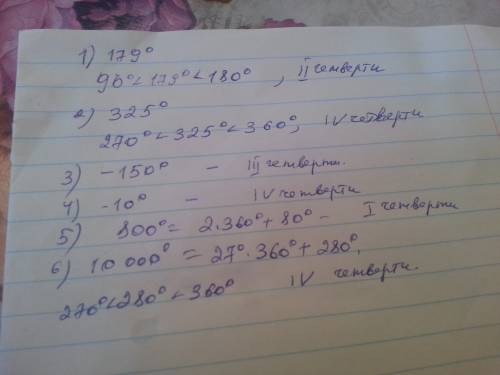 1) 179°
90° < 179° < 180°, II четверти
2) 325°
270° < 325° < 360°, IV четверти
3) -150° - III четверти.
4) -10° - IV четверти
5) 800° = 2·360° + 80° - I четверти
6) 10 000° = 27°·360° + 280°,
270° < 280° < 360° IV четверти.